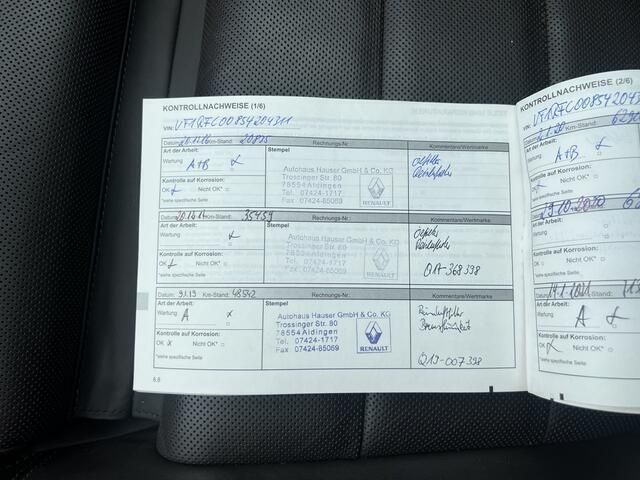 KONTROLLNACHWEISE (1/6)
VIN: VF1RFC00854204311
Datum: 20.11.16 Km-Stand: 20875 Rechnungs-Nr.: Kommentare/Wertmarke
Art der Arbeit: Stempel
Wartung A+B
Autohaus Hauser GmbH & Co. KG
Trossinger Str. 80
78554 Aldingen
Tel. 07424-1717
Fax 07424-85069
RENAULT
Kontrolle auf Korrosion:
OK Nicht OK*
*siehe spezifische Seite
Datum: Km-Stand: 35459 Rechnungs-Nr.: Kommentare/Wertmarke
Art der Arbeit: Stempel
Wartung
Autohaus Hauser GmbH & Co. KG
Trossinger Str. 80
78554 Aldingen
Tel. 07424-1717
Fax 07424-85069
RENAULT
Q17-368398
Kontrolle auf Korrosion:
OK Nicht OK*
*siehe spezifische Seite
Datum: 9.1.19 Km-Stand: 48542 Rechnungs-Nr.: Kommentare/Wertmarke
Art der Arbeit: Stempel
Wartung A x
Autohaus Hauser GmbH & Co. KG
Trossinger Str. 80
78554 Aldingen
Tel. 07424-1717
Fax 07424-85069
RENAULT
Q19-007398
Kontrolle auf Korrosion:
OK x Nicht OK*
*siehe spezifische Seite
6.8
KONTROLLNACHWEISE (2/6)
VIN: VF1RFC008542043
Km-Stand:
Art der Arbeit:
Wartung A+B
Kontrolle auf Korrosion:
OK Nicht OK*
*siehe spezifische Seite
29.10.2020
Art der Arbeit:
Wartung
Kontrolle auf Korrosion:
OK Nicht OK*
*siehe spezifische Seite
Art der Arbeit:
Wartung A
Kontrolle auf Korrosion:
OK Nicht OK*
*siehe spezifische Seite